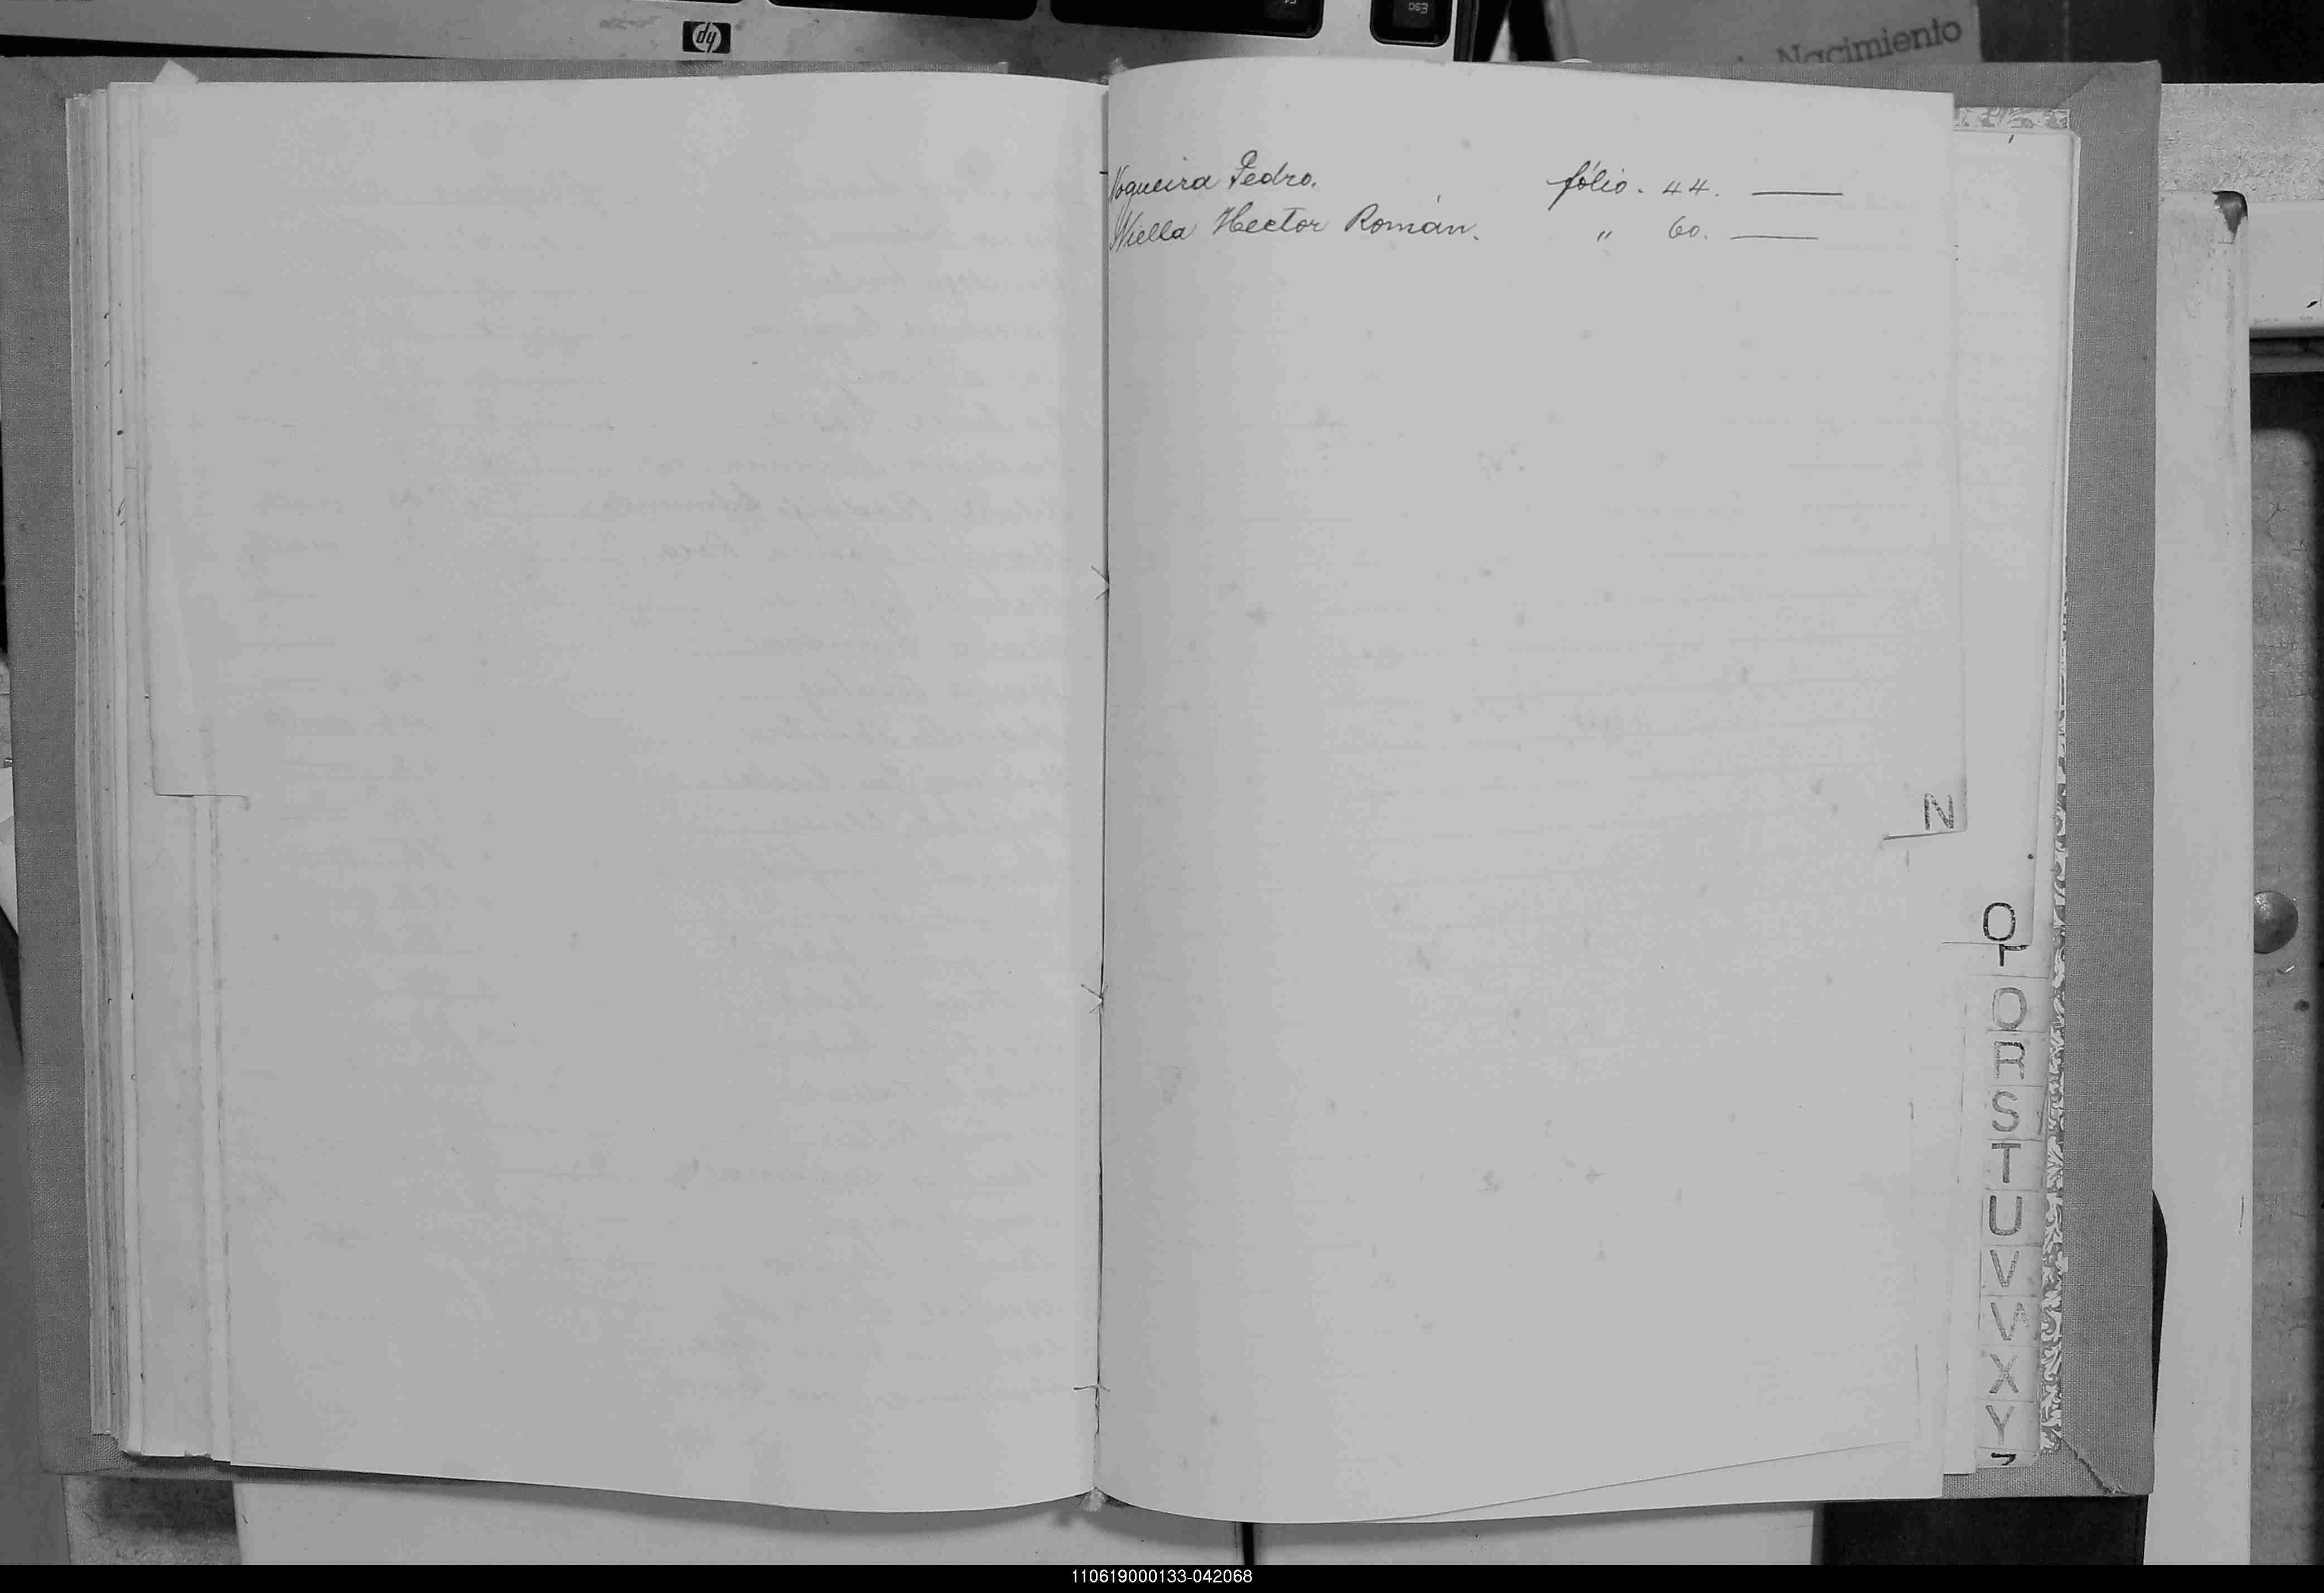 hp
Esc
Nacimiento
Nogueira Pedro. fólio. 44.
Niella Hector Román. " 60.
N
O
P
Q
R
S
T
U
V
W
X
Y
Z
110619000133-042068